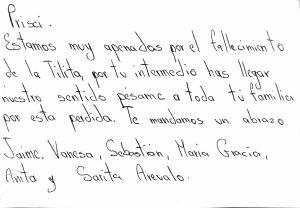 Prisci.
Estamos muy apenados por el fallecimiento
de la Tilita, por tu intermedio has llegar
nuestro sentido pesame a toda tu familia
por esta perdida. Te mandamos un abrazo
Jaime, Vanesa, Sebastián, Maria Gracia,
Anita y Sarita Arevalo.